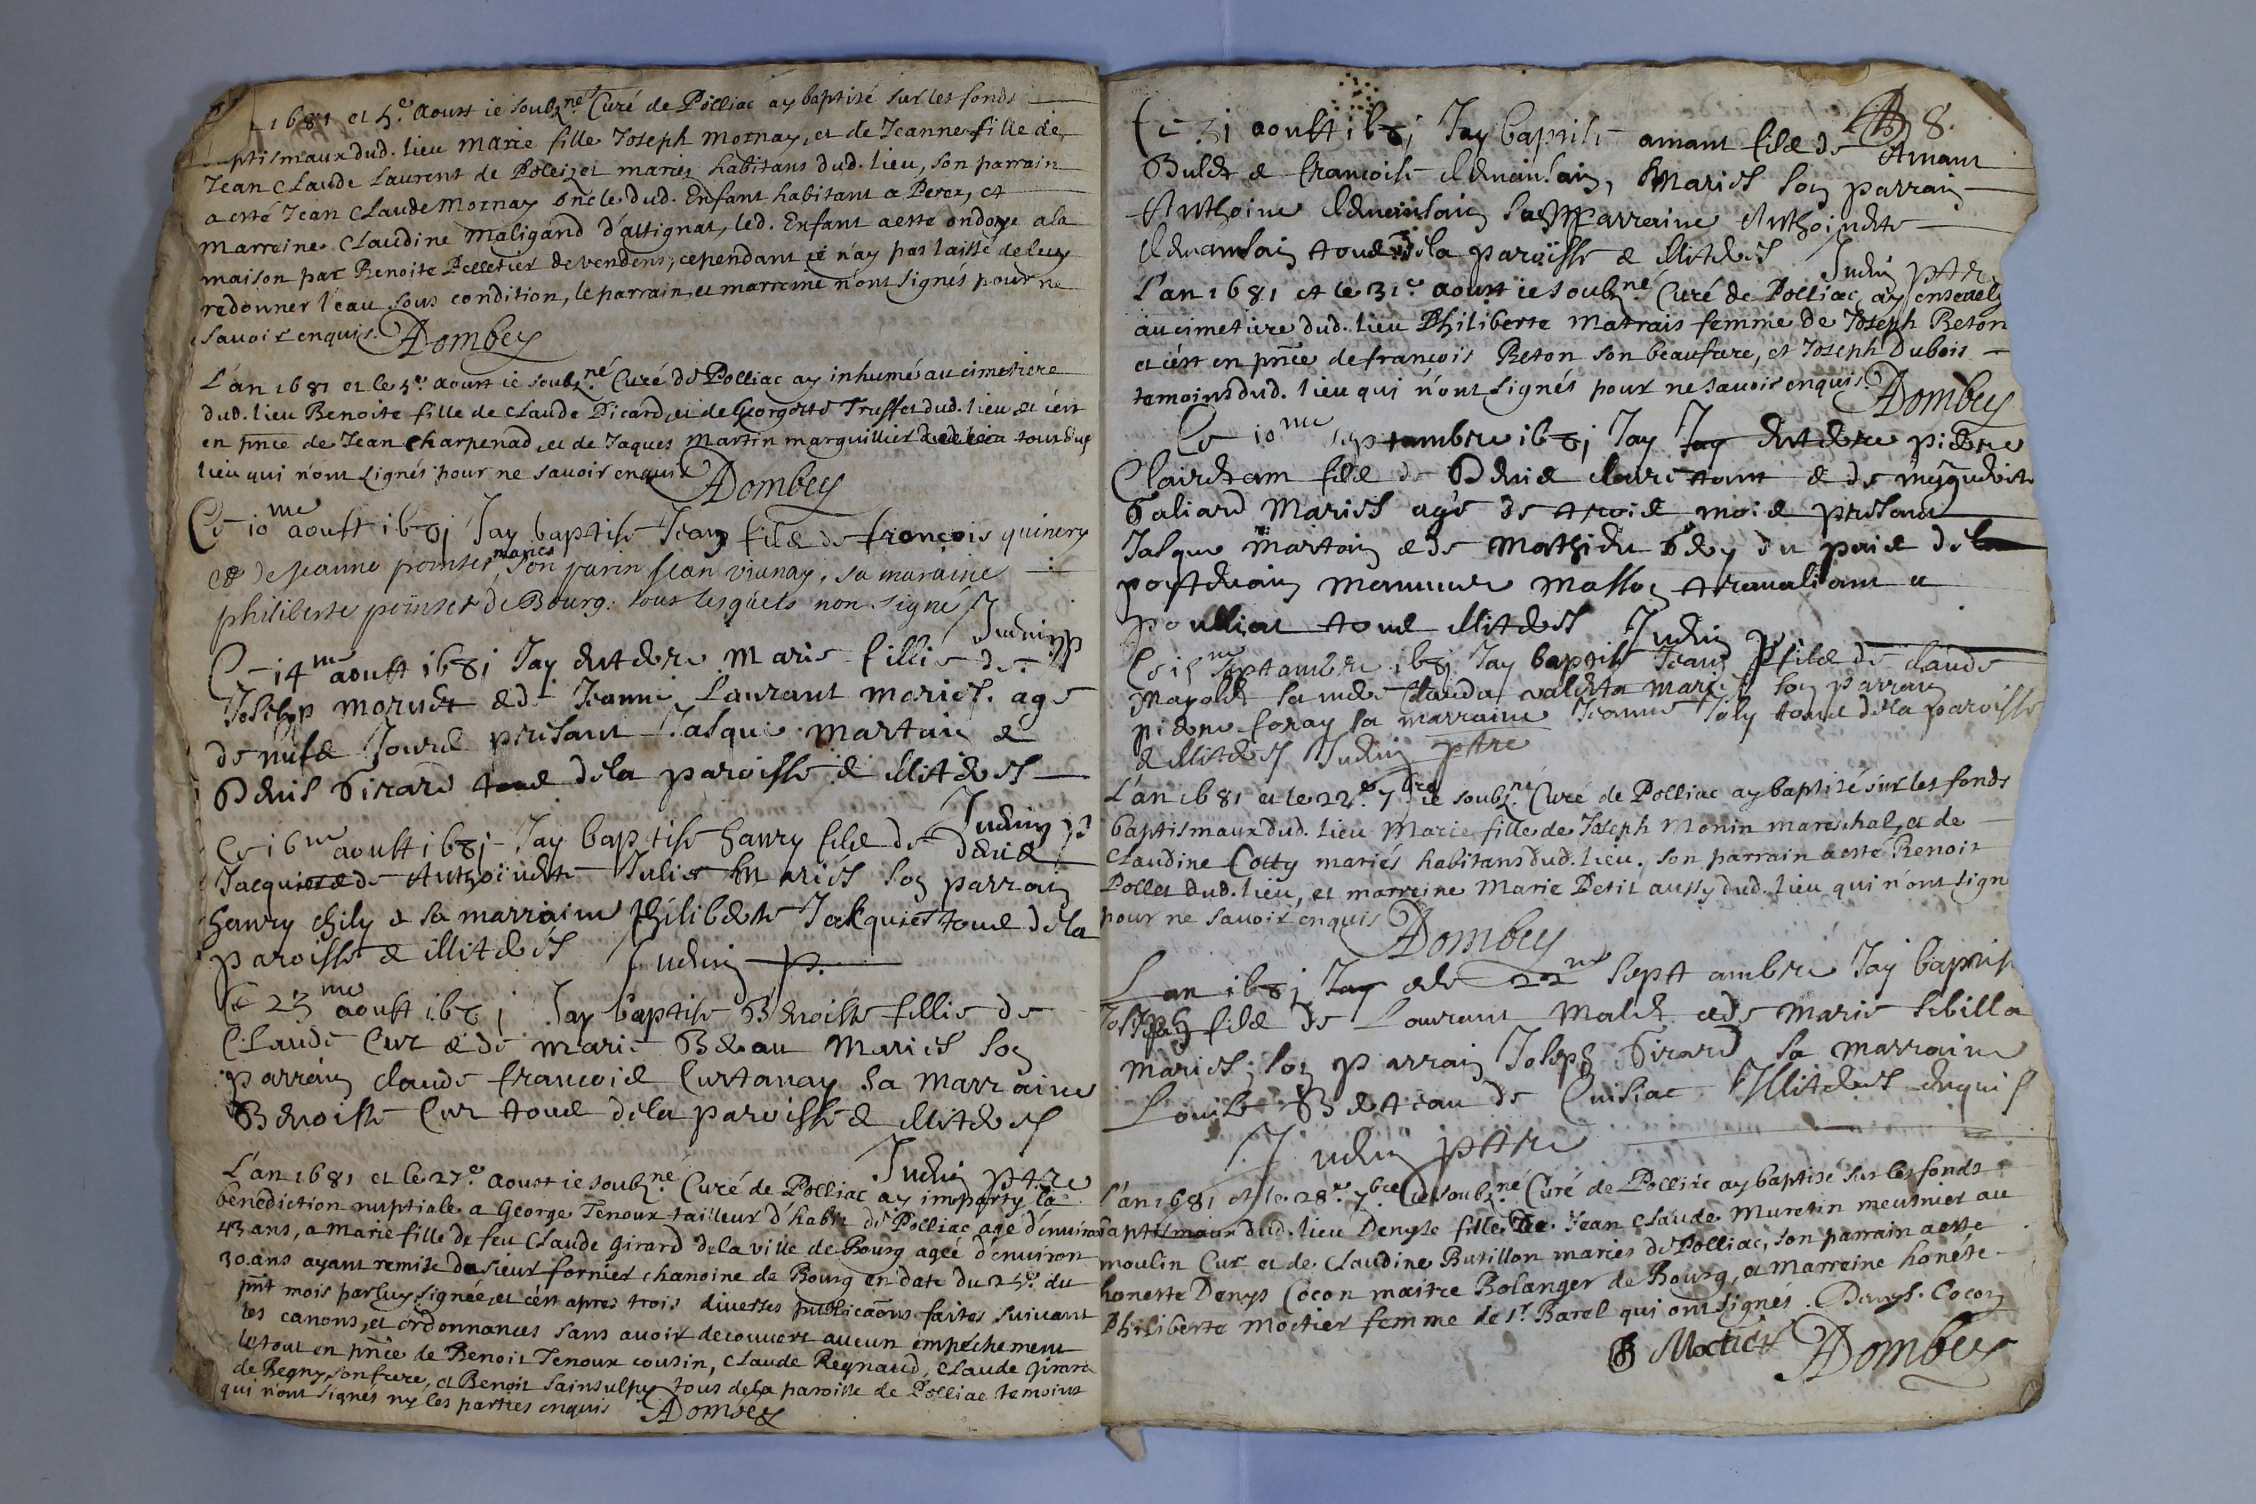 1681 et 5e. Aoust ie soubz.né Curé de Polliac ay baptisé sur les fonds
ptismaux dud. lieu Marie fille Joseph Mornay, et de Jeanne fille de
Jean Claude Laurent de Polliac et mariez habitans dud. lieu, son parrain
a esté Jean Claude Mornay oncle dud. Enfant habitant a Perex, et
marreine Claudine Maligand d'attignat, led. Enfant a esté ondoye a la
maison par Benoite Pelletier de vendens, cependant ie n'ay pas laissé de luy
redonner l'eau sous condition, le parrain, et marreine n'ont signés pour ne
savoir enquis. Dombey
L'an 1681 et le 5e. Aoust ie soubz.né Curé de Polliac ay inhumé au cimetiere
dud. lieu Benoite fille de Claude Picard, et de Georgette Truffet dud. lieu et c'est
en pnce de Jean Charpenad, et de Jaques Martin marguillier tous dud.
lieu qui n'ont signés pour ne savoir enquis Dombey
Ce 10me aoust 1681 Jay baptise Jean filz de françois quinery
et de jeanne poinset mariés son parin jean viunay, sa maraine
philiberte poinset de Bourg. tous lesquels non signé Judin p
Ce 14me aoust 1681 Jay enterre Marie fillie de
Joseph mornet e de Jeanne Laurant mariés. age
de nufz Jours presant Jasque martain e
Denis Girard tous de la paroisse e illiteres
Judin p
Ce 16me aoust 1681 Jay baptise hanry filz de Denis
Jacquier e de Anthoinette Julie Mariés son parrain
hanry chily e sa marraine philiberte Jakquier tous de la
paroisse e illiteres Judin p.
Ce 23me aoust 1681 Jay baptise Benoiste fillie de
Claude Cur e de marie Beau Mariés son
parrain claude francois Curtanay sa marraine
Benoiste Cur tous de la paroisse e illiteres
Judin ptre
L'an 1681 et le 27e. Aoust ie soubz.né Curé de Polliac ay imparty la
benediction nuptiale a George Tenoux tailleur d'habit de Polliac agé d'environ
43 ans, a Marie fille de feu Claude Girard de la ville de Bourg agée d'environ
30. ans ayant remise du sieur fornier chanoine de Bourg en date du 25e. du
pnt mois par luy signée, et c'est apres trois diverses publicaõns faites suivant
les canons, et ordonnances sans avoir decouvert aucun empéchement
le tout en pnce de Benoit Tenoux cousin, Claude Regnaud, Claude Girard
de Regny son frere, et Benoit Sainsulpy tous de la paroisse de Polliac temoins
qui n'ont signés ny les parties enquis Dombey
8.
Ce 31 aoust 1681 Jay baptise amant filz de Amant
Bulet e francoise , Mariés son parrain
Anthoine sa Marraine Anthoinette
tous de la paroisse e illiteres Judin ptre
L'an 1681 et le 31e. Aoust ie soubz.né Curé de Polliac ay ensevely
au cimetiere dud. lieu Philiberte Matrais femme de Joseph Beton
et c'est en pnce de françois Beton son beaufrere, et Joseph Dubois
temoins dud. lieu qui n'ont signés pour ne savoir enquis. Dombey
Ce 10me septambre 1681 Jay Jay enterre pierre
filz de Denis e de
Galiard Mariés agé de trois mois presant
Jasque Martain e de Mathieu Grey du païs de la
masson travaliant a
poulliat tous illiteres Judin p
Ce 15me septambre 1681 Jay baptise Jean filz de claude
Mapolet Clauda mariés son parrain
pierre foray sa marraine Jeanne Joly tous de la paroisse
e illiteres Judin ptre
L'an 1681 et le 22e. 7bre ie soubz.né Curé de Polliac ay baptisé sur les fonds
baptismaux dud. lieu Marie fille de Joseph Monin marechal, et de
Claudine Cotty mariés habitans dud. lieu. son parrain a esté Benoit
Pollet dud. lieu, et marreine Marie Petit aussy dud. lieu qui n'ont sign
pour ne savoir enquis Dombey
Lan 1681 Jay e le 22me septambre Jay baptise
Joseph filz de Laurant Malet e de Marie Sebilla
mariés; son parrain Joseph Girard sa marraine
Louise Beteau de Cuisiac Illiteres enquis
Judin ptre
L'an 1681 et le 28e. 7bre ie soubz.né Curé de Polliac ay baptisé sur les fonds
aptismaux dud. lieu Denyse fille de Jean Claude Muretin meusnier au
moulin Cur et de Claudine Butillon mariés de Polliac, son parrain a esté
honeste Denys Cocon maitre Bolanger de Bourg, et Marreine honéte
Philiberte Moctier femme de sr. Barel qui ont signés. Denys. Cocon
Moctier Dombey